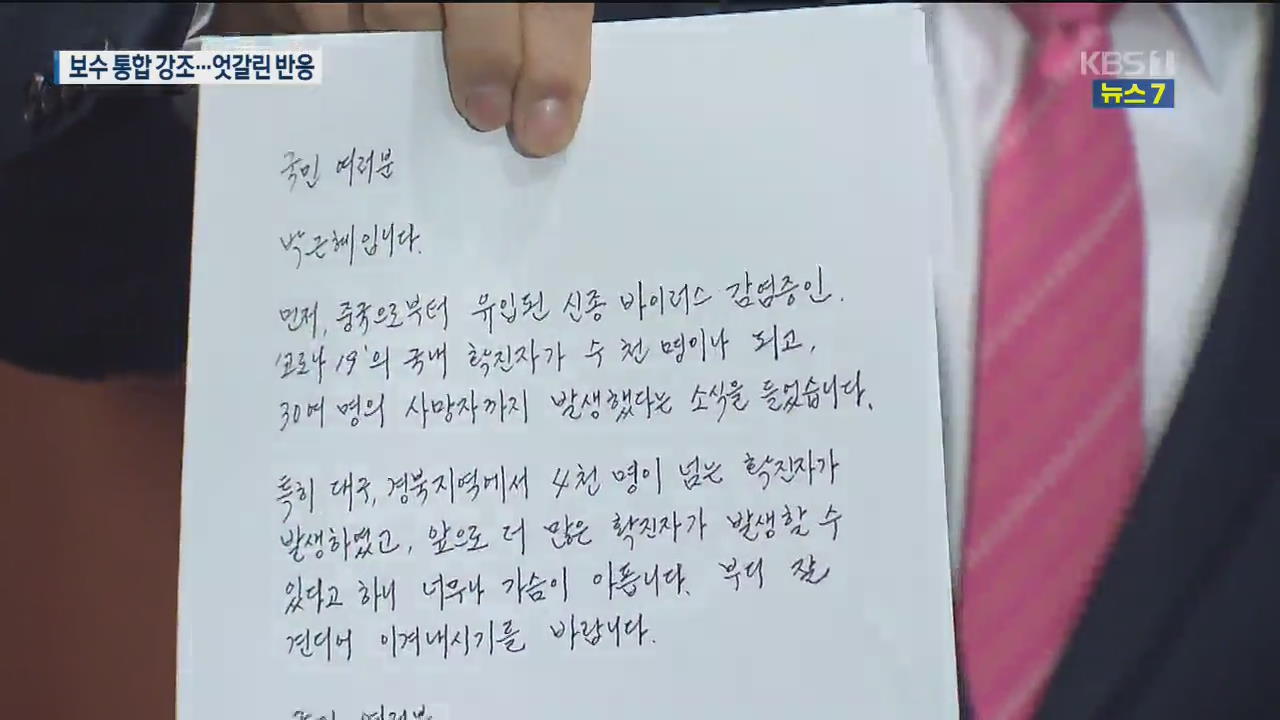 보수 통합 강조…엇갈린 반응
KBS 1
뉴스 7
국민 여러분
박근혜입니다.
먼저, 중국으로부터 유입된 신종 바이러스 감염증인.
'코로나 19'의 국내 확진자가 수 천 명이나 되고,
30여 명의 사망자까지 발생했다는 소식을 들었습니다.
특히 대구, 경북지역에서 4천 명이 넘는 확진자가
발생하였고, 앞으로 더 많은 확진자가 발생할 수
있다고 하니 너무나 가슴이 아픕니다. 부디 잘
견디어 이겨내시기를 바랍니다.
국민 여러분